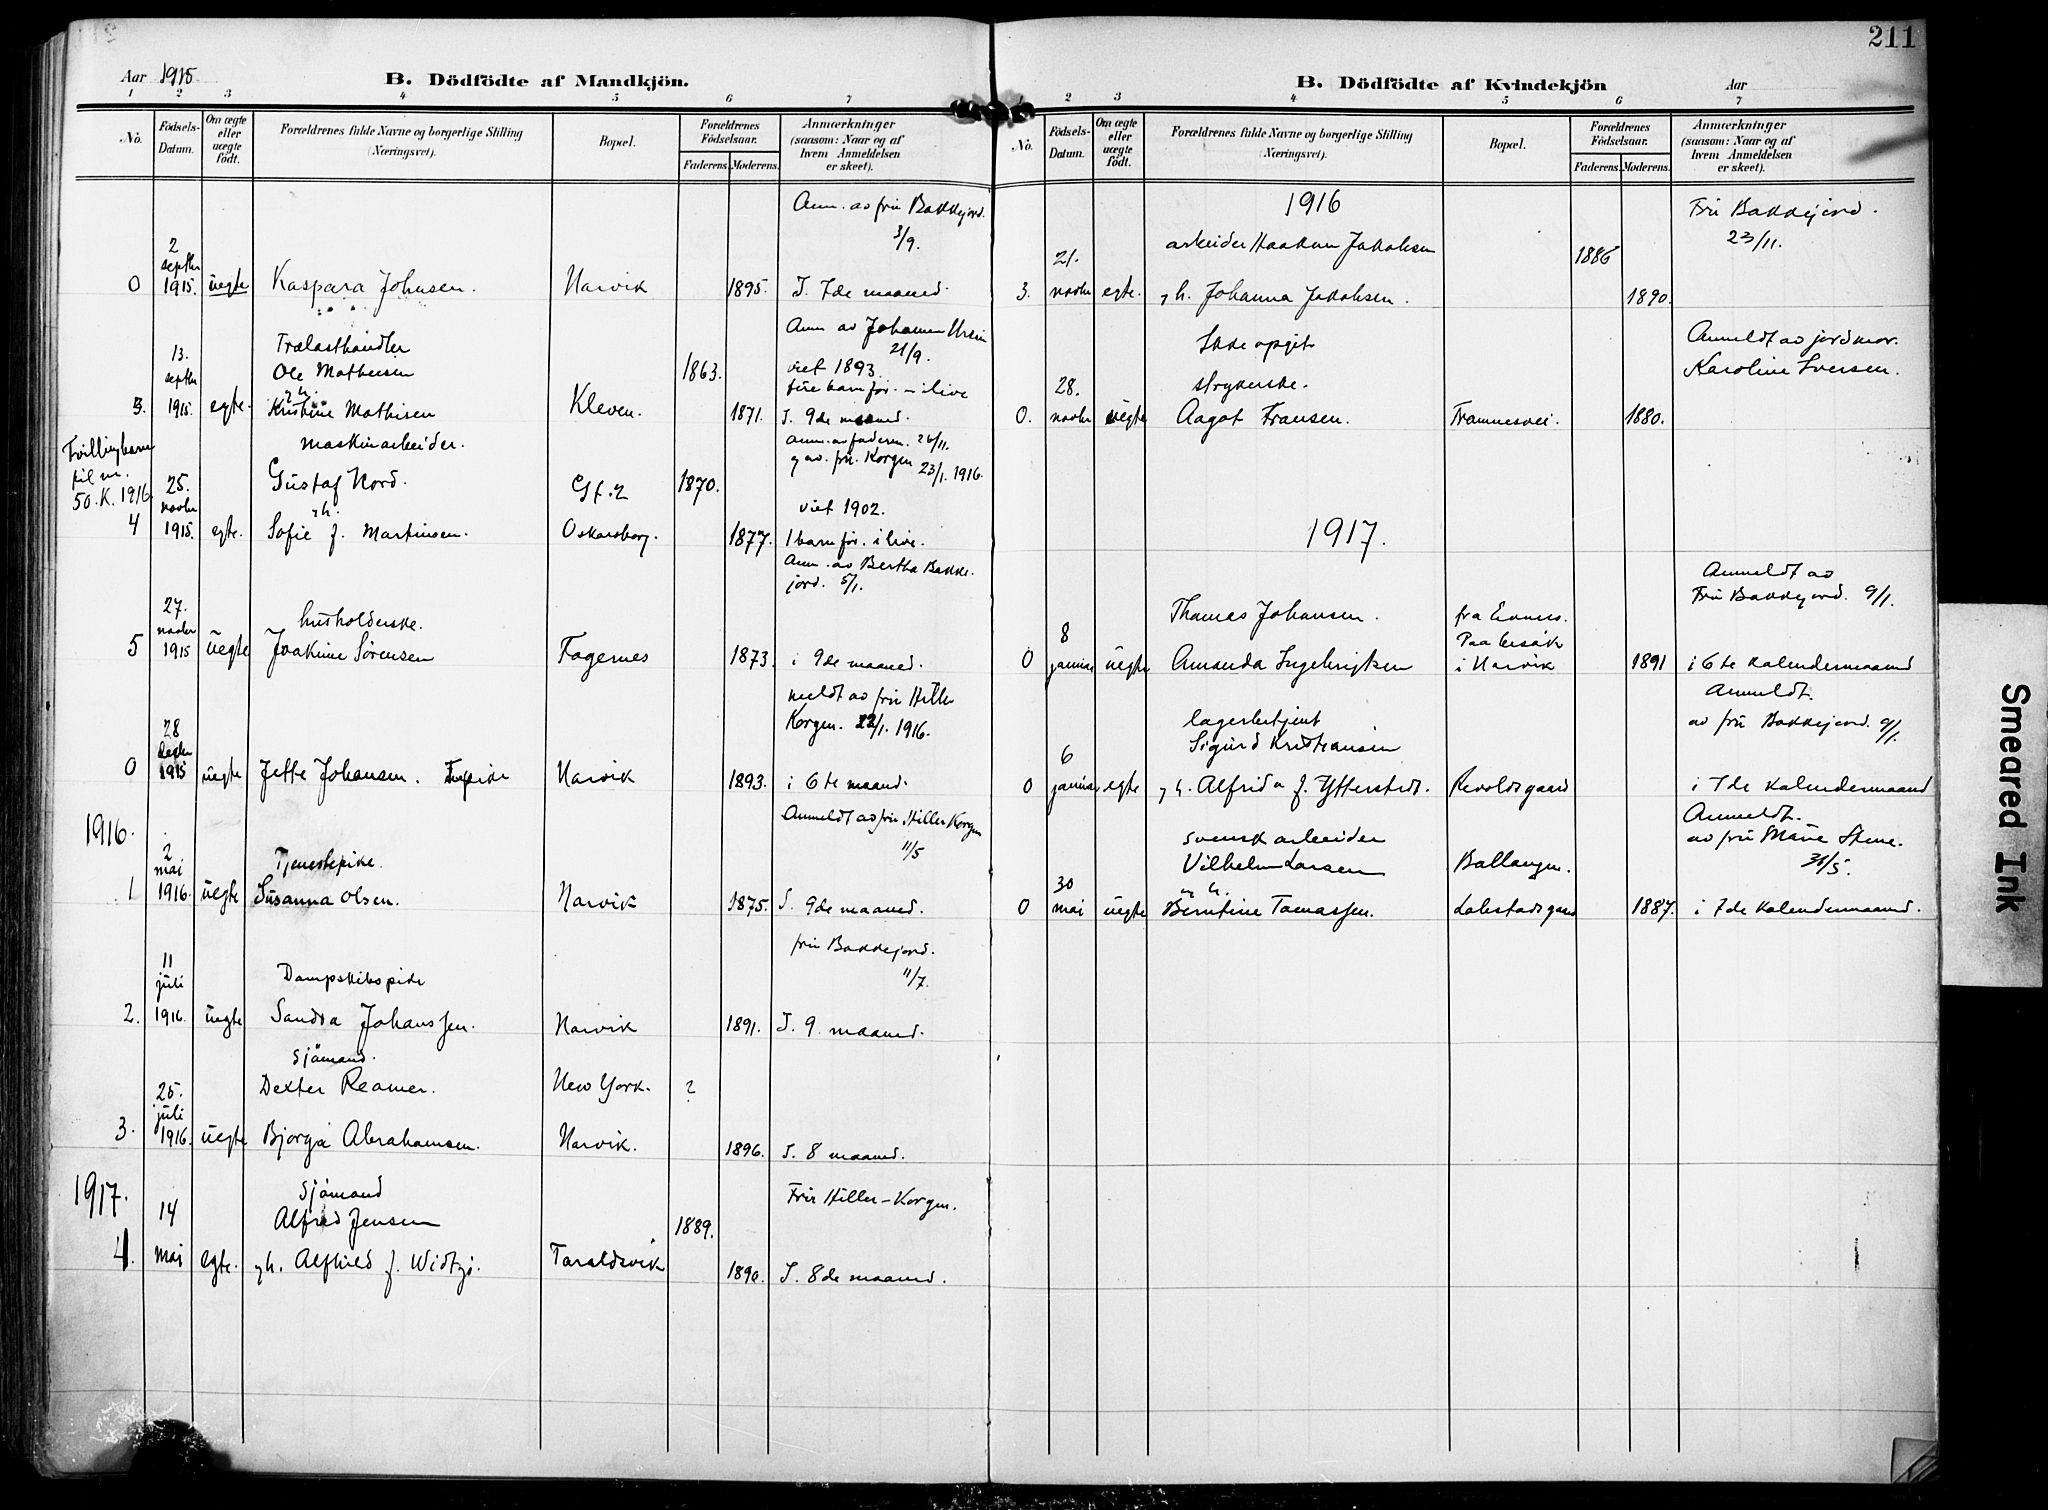 211
Aar 1915
B. Dödfödte af Mandkjön.
1 2 3 4 5 6 7
No.
Födsels-Datum.
Om ægte eller uægte födt.
Forældrenes fulde Navne og borgerlige Stilling (Næringsvei).
Bopæl.
Forældrenes Födselsaar.
Faderens. Moderens.
Anmærkninger (saasom: Naar og af hvem Anmeldelsen er skeet).
Anm. av fru Bakkejord.
3/9.
2
septbr
0 1915. uegte Kaspara Johnsen. Narvik 1895. I. 7de maaned.
Anm av Johanne Ursin
21/9.
13. Trælasthandler
septbr Ole Mathisen 1863. viet 1893.
fire barn før. - i live
3. 1915. egte. Kristine Mathisen Kleven. 1871. I. 9de maaned.
Tvillingbarn
til nr.
50. K. 1916.
maskinarbeider. anm. av faderen. 26/11.
og av. fru. Korgen 23/1. 1916.
25. Gustaf Nord. Gt. 2 1870.
novbr gh. viet 1902.
4 1915. egte. Sofie f. Martinsen. Oskarsborg. 1877. 1 barn før. i live.
Anm. av Bertha Bakke-
jord. 5/1.
27. husholderske.
novbr
5 1915 uegte Joakime Sørensen Fagernes 1873. i 9de maaned.
meldt av fru Hiller
Korgen. 22/1. 1916.
28
1915
0 uegte Jette Johansen. Narvik 1893. i 6te maaned.
1916.
Anmeldt av fru Hiller Korgen
11/5
2
mai Tjenestepike.
1 1916. uegte Susanna Olsen. Narvik 1875. I. 9de maaned.
fru Bakkejord.
11/7.
11
juli Dampskibspike
2. 1916. uegte Sandra Johanssen. Narvik 1891. I. 9. maaned.
Sjömand.
25. Dexter Reamer. New York. ?
juli
3. 1916. uegte Bjorga Abrahamsen. Narvik. 1896. I. 8 maaned.
1917.
Sjömand Fru Hiller-Korgen.
14 Alfred Jensen 1889.
4. mai egte. gh. Alfhild f. Widtzø. Taraldsvik 1890. I. 8de maaned.
B. Dödfödte af Kvindekjön
Aar
1 2 3 4 5 6 7
No.
Födsels-Datum.
Om ægte eller uægte födt.
Forældrenes fulde Navne og borgerlige Stilling (Næringsvei).
Bopæl.
Forældrenes Födselsaar.
Faderens. Moderens.
Anmærkninger (saasom: Naar og af hvem Anmeldelsen er skeet).
1916
Fru Bakkejord.
23/11.
21. arbeider Haakon Jakobsen 1886
3. novbr egte. gh. Johanna Jakobsen. 1890.
Ikke opgit Anmeldt av jordmor.
Karoline Iversen.
28. strykerske.
0. novbr uegte Aagot Fransen. Framnesvei. 1880.
1917.
Anmeldt av
Fru Bakkejord. 9/1.
Thomas Johansen. fra Evenes.
8 Paa besøk
0 januar uegte Amanda Ingebrigtsen i Narvik 1891 i 6te kalendermaaned
Anmeldt.
lagerbetjent av fru Bakkejord. 9/1.
6 Sigurd Kristiansen
0 januar egte gh. Alfrida f. Ytterstedt. Revoldsgaard i 7de kalendermaaned
Anmeldt.
svensk arbeider av fru Marie Stene.
Vilhelm Larsen Ballangen. 31/5.
30
0 mai uegte Berntine Tomassen. Labstadsgaard 1887. i 7de kalendermaaned.
Smeared Ink